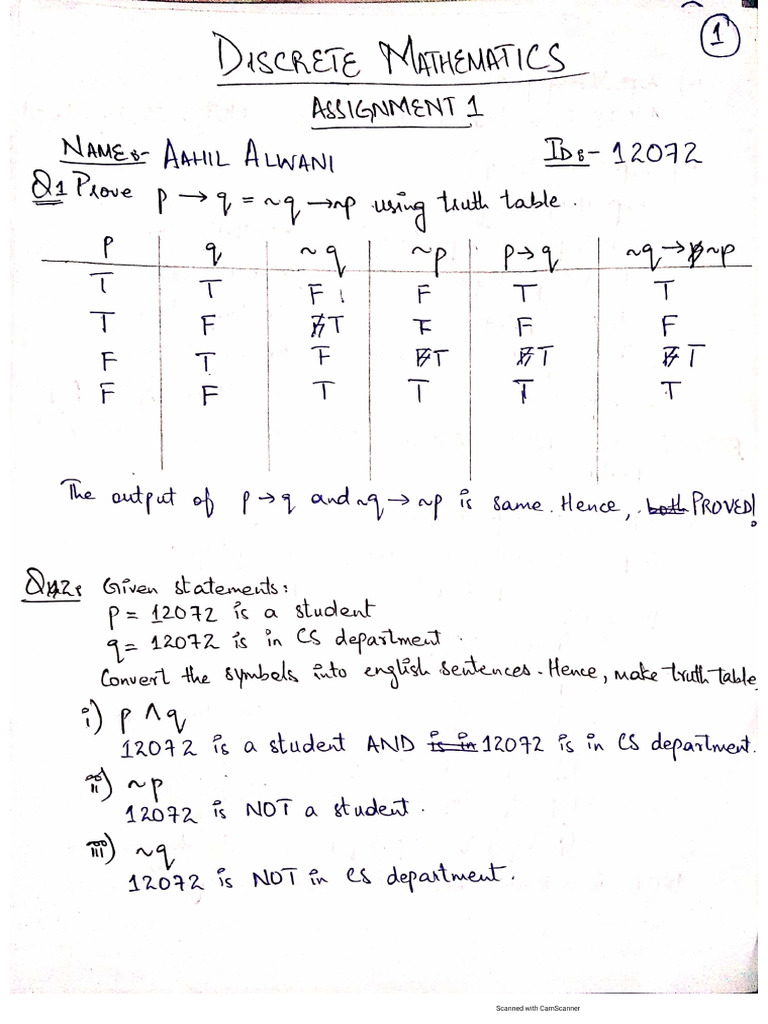 1
DISCRETE MATHEMATICS
ASSIGNMENT 1
NAME:- AAHIL ALWANI ID:- 12072
Q1 Prove p → q = ~q → ~p using truth table.
p q ~q ~p p→q ~q → ~p
T T F F T T
T F T F F F
F T F T T T
F F T T T T
The output of p → q and ~q → ~p is same. Hence, both PROVED!
Q2: Given statements:
p = 12072 is a student
q = 12072 is in CS department.
Convert the symbols into english sentences. Hence, make truth table
i) p ∧ q
12072 is a student AND is in 12072 is in CS department.
ii) ~p
12072 is NOT a student.
iii) ~q
12072 is NOT in CS department.
Scanned with CamScanner